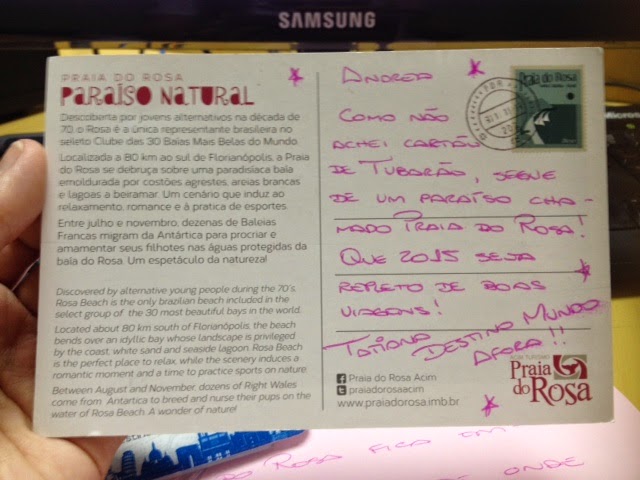 SAMSUNG
PRAIA DO ROSA
PARAÍSO NATURAL
Descoberta por jovens alternativos na década de
70, o Rosa é a única representante brasileira no
seleto Clube das 30 Baías Mais Belas do Mundo.
Localizada a 80 km ao sul de Florianópolis, a Praia
do Rosa se debruça sobre uma paradisíaca baía
emoldurada por costões agrestes, areias brancas
e lagoas a beiramar. Um cenário que induz ao
relaxamento, romance e à pratica de esportes.
Entre julho e novembro, dezenas de Baleias
Francas migram da Antártica para procriar e
amamentar seus filhotes nas águas protegidas da
baía do Rosa. Um espetáculo da natureza!
Discovered by alternative young people during the 70's,
Rosa Beach is the only brazilian beach included in the
select group of the 30 most beautiful bays in the world.
Located about 80 km south of Florianópolis, the beach
bends over an idyllic bay whose landscape is privileged
by the coast, white sand and seaside lagoon. Rosa Beach
is the perfect place to relax, while the scenery induces a
romantic moment and a time to practice sports on nature.
Between August and November, dozens of Right Wales
come from Antartica to breed and nurse their pups on the
water of Rosa Beach. A wonder of nature!
ANDREA
COMO NÃO
ACHEI CARTÃO
DE TUBARÃO, SEGUE
DE UM PARAÍSO CHA-
MADO PRAIA DO ROSA!
QUE 2015 SEJA
REPLETO DE BOAS
VIAGENS!
TATIANA DESTINO MUNDO
AFORA!!
Praia do Rosa
Praia do Rosa Acim
praiadorosaacim
www.praiadorosa.imb.br
Praia
do Rosa
ROSA FICA EM
ONDE